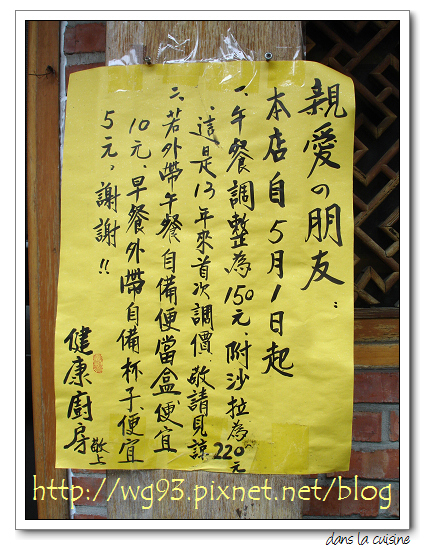 親愛の朋友:
本店自5月1日起
一、午餐調整為150元,附沙拉為220元
,這是13年來首次調價,敬請見諒
二、若外帶午餐自備便當盒便宜
10元,早餐外帶自備杯子,便宜
5元,謝謝!!
健康廚房敬上
http://wg93.pixnet.net/blog
dans la cuisine